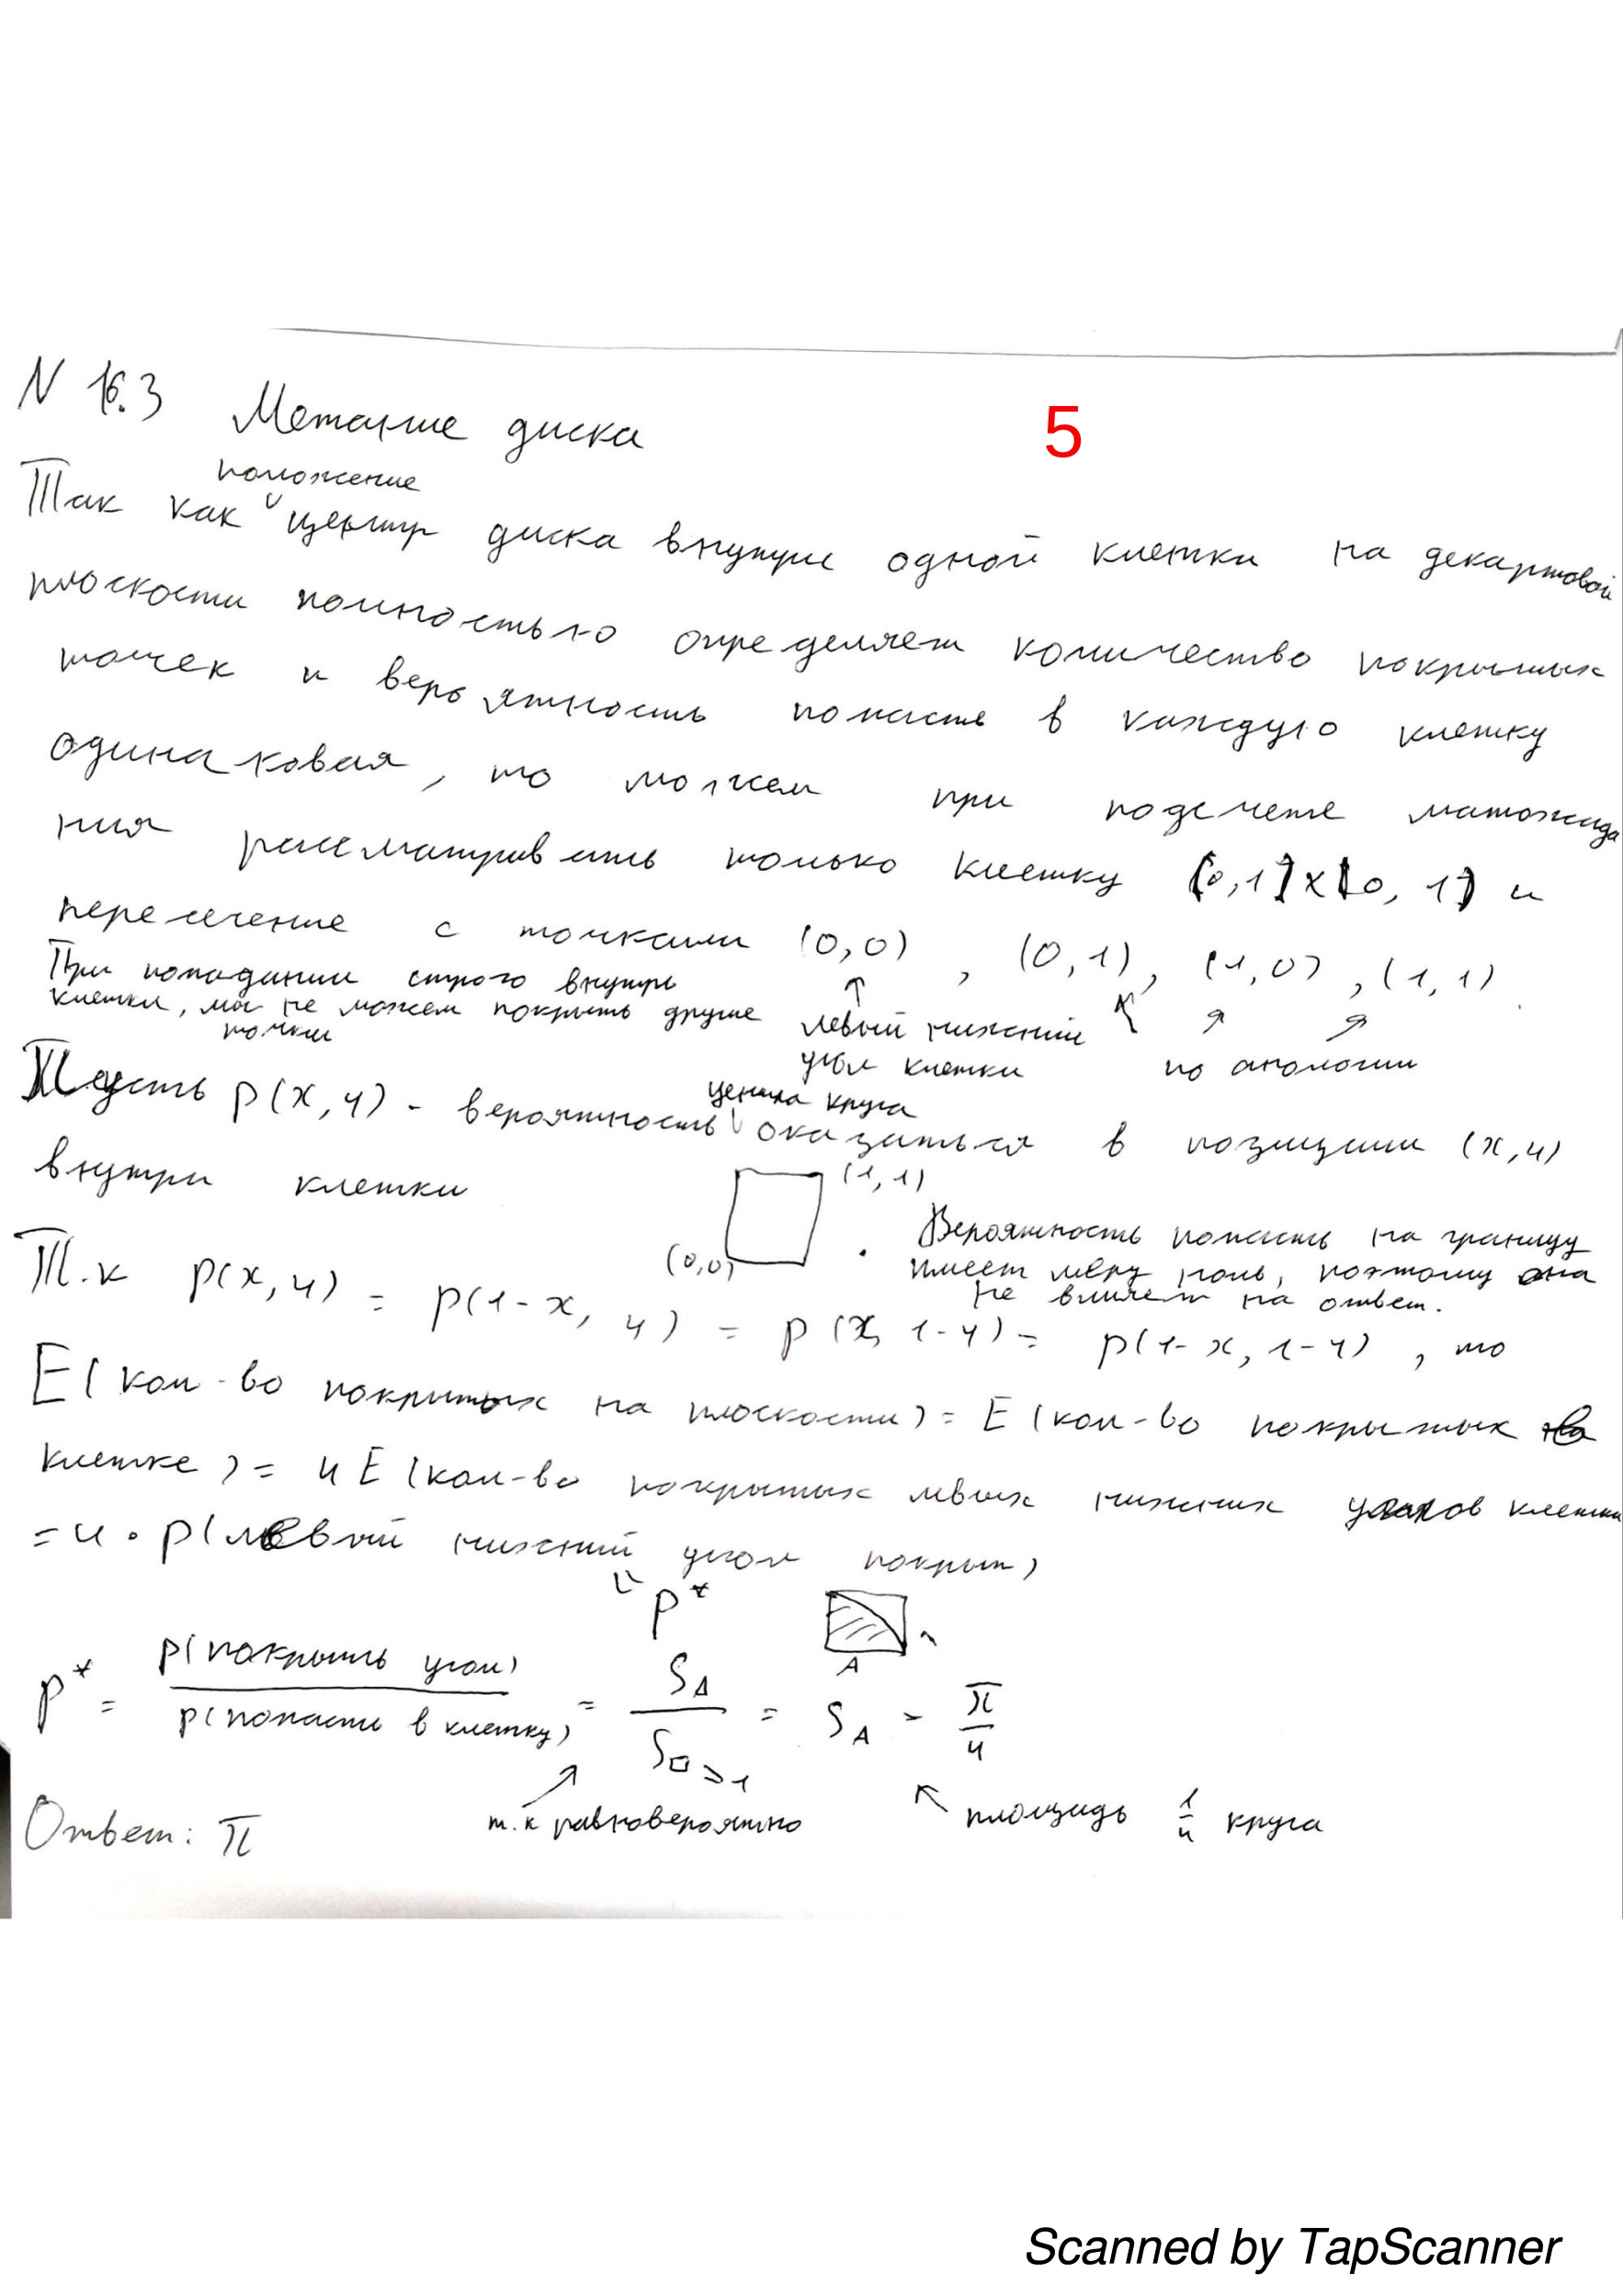 N 16.3 Метание диска
5
положение
Так как центр диска внутри одной клетки на декартовой
плоскости полностью определяет количество покрытых
точек и вероятность попасть в каждую клетку
одинаковая, то можем при подсчете матожида
ния рассматривать только клетку [0,1]x[0,1] и
пересечение с точками (0,0), (0,1), (1,0), (1,1).
При попадании строго внутрь
клетки, мы не можем покрыть другие
точки
левый нижний
угол клетки
по аналогии
центра круга
Пусть p(x,y) - вероятность оказаться в позиции (x,y)
внутри клетки
(1,1)
(0,0)
Вероятность попасть на границу
имеет меру ноль, поэтому она
не влияет на ответ.
Т.к p(x,y) = p(1-x, y) = p(x, 1-y) = p(1-x, 1-y), то
E(кол-во покрытых на плоскости) = E(кол-во покрытых
клетке) = 4E(кол-во покрытых левых нижних углов клетки
= 4 · p(левый нижний угол покрыт)
p*
A
p* = p(покрыть угол) / p(попасть в клетку) = S_A / S_□ = S_A = π/4
т.к равновероятно
площадь 1/4 круга
Ответ: π
Scanned by TapScanner